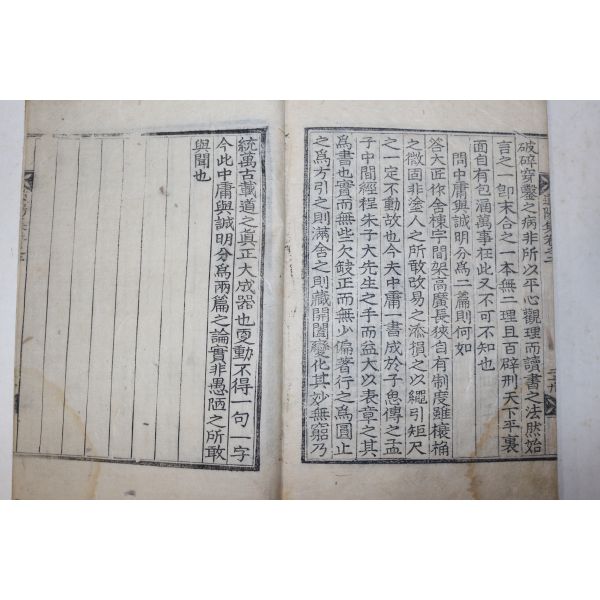 破碎穿鑿之病非所以平心觀理而讀書之法然始
言之一卽末合之一本無二理且百辟刑天下平裏
面自有包涵萬事在此又不可不知也
問中庸與誠明分爲二篇則何如
答大匠作舍棟宇間架高廣長狹自有制度雖榱桷
之微固非塗人之所敢改易之添損之以繩引短尺
之一定不動故也今夫中庸一書成於子思傳之孟
子中間經程朱子大先生之手而益大以表章之其
爲書也實而無些欠缺正而無少偏著行之爲圓止
之爲方引之則滿舍之則藏開闔變化其妙無窮乃
統萬古載道之眞正大成器也更動不得一句一字
今此中庸與誠明分爲兩篇之論實非愚陋之所敢
與聞也